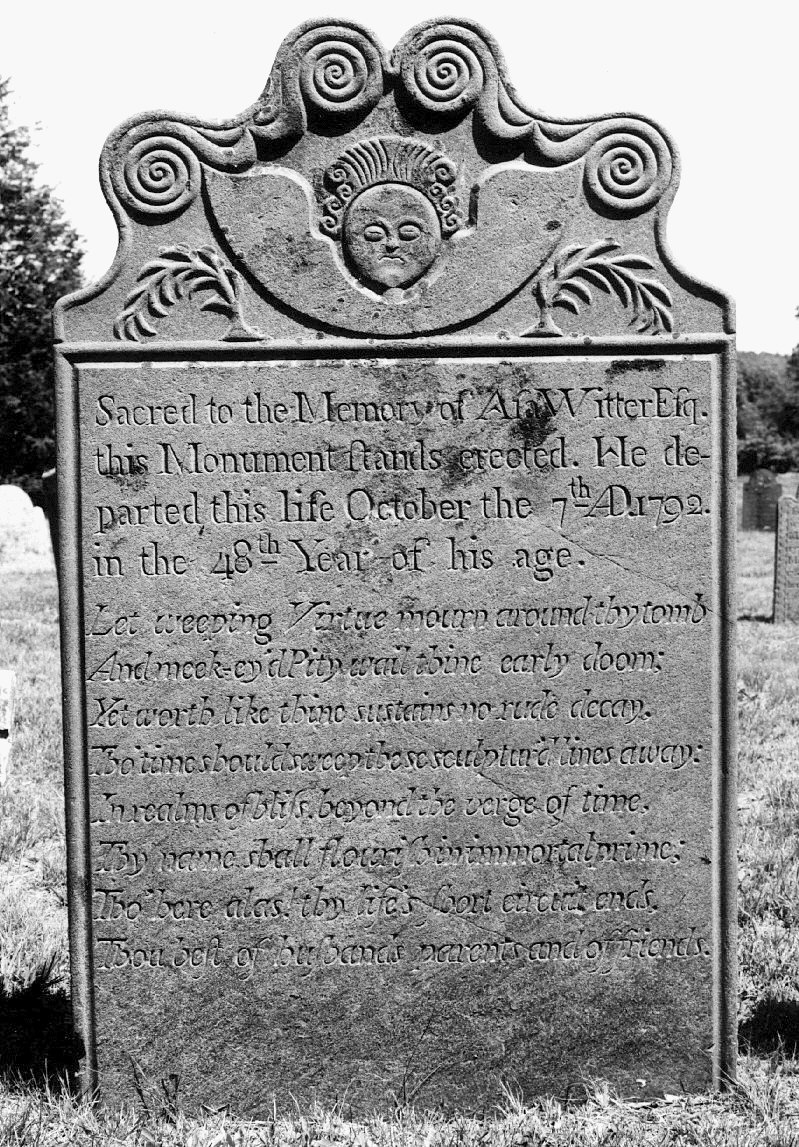 Sacred to the Memory of Aſa Witter Eſq.
this Monument ſtands erected. He de-
parted this life October the 7th AD. 1792.
in the 48th Year of his age.
Let weeping Virtue mourn around thy tomb
And meek-ey'd Pity wail thine early doom;
Yet worth like thine sustains no rude decay,
Tho' time should sweep these sculptur'd lines away:
In realms of bliſs, beyond the verge of time,
Thy name shall flouriſh in immortal prime;
Tho' here alas! thy life's ſhort circuit ends.
Thou beſt of huſbands parents and of friends.